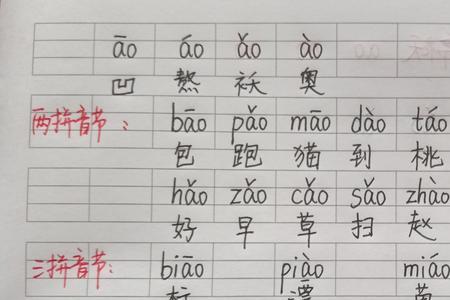 āo áo ǎo ào
凹 熬 袄 奥
两拼音节： bāo pǎo māo dào táo
包 跑 猫 到 桃
hǎo zǎo cǎo sǎo zhào
好 早 草 扫 赵
三拼音节： biāo piào miáo
标 漂 苗